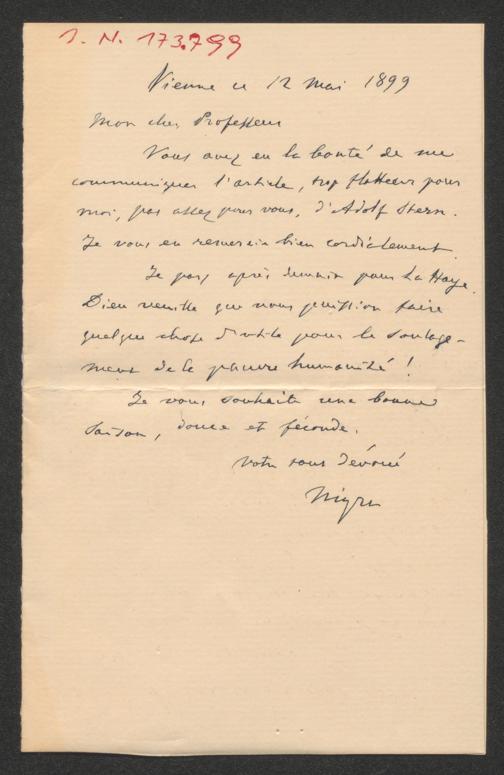 J. N. 173.799
Vienne ce 12 mai 1899
Mon cher Professeur
Vous avez eu la bonté de me
communiquer l'article, trop flatteur pour
moi, pas assez pour vous, d'Adolf Stern.
Je vous en remercie bien cordialement.
Je pars après demain pour La Haye.
Dieu veuille que nous puission faire
quelque chose d'utile pour le soulage-
ment de la pauvre humanité !
Je vous souhaite une bonne
saison, douce et féconde.
Votre tout dévoué
Nigra